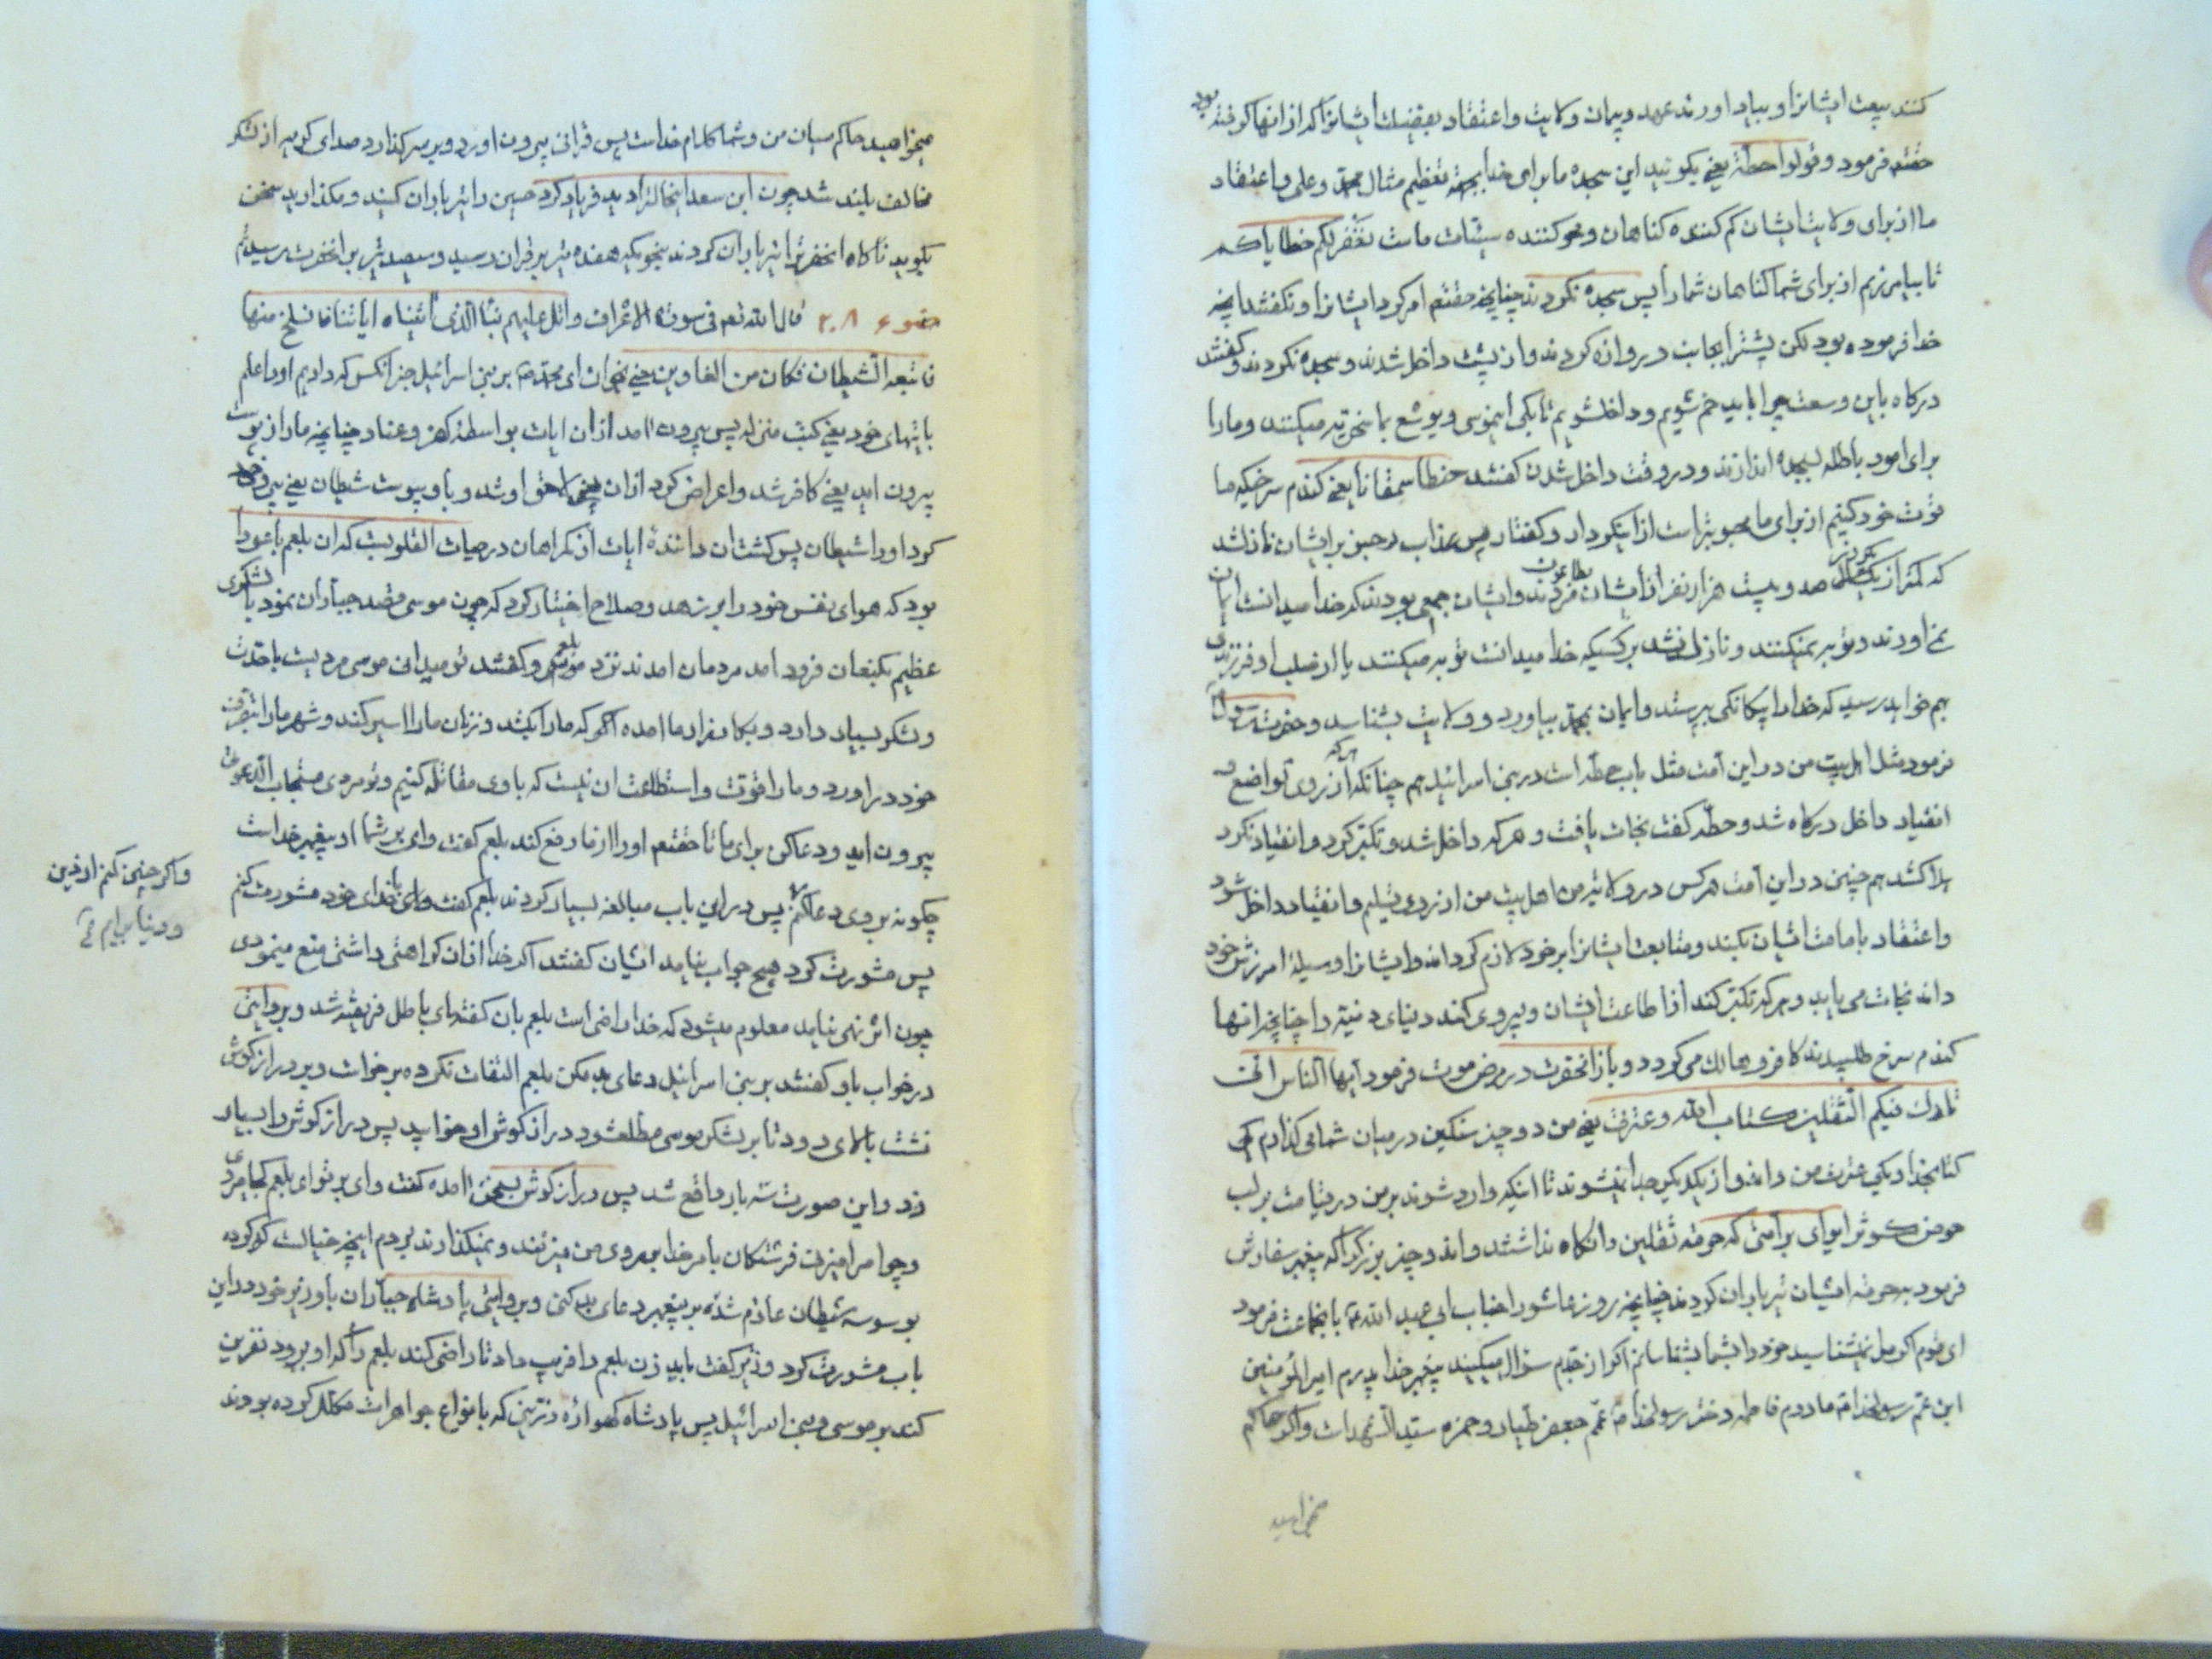 کنند بیعت ایشانرا و بیاد اورند عهد و پیمان ولایت و اعتقاد بفضیلت ایشانرا که از انها گرفته بود
حقتعم فرمود و قولوا حطّة یعنی بگوئید این سجده ما برای خدا بجهة تعظیم مثال محمّد و علی و اعتقاد
ما از برای ولایت ایشان کم کننده کناهان و محو کننده سیّئات ماست نغفر لکم خطایاکم
تا بیامرزیم از برای شما کناهان شما را پس سجده نکردند چنانچه حقتعم امر کرد ایشانرا و نکفتند انچه
خدا فرموده بود لکن پشترا بجانب دروازه کردند و از پشت داخل شدند و سجده نکردند و کفتند
درکاه باین وسعت چرا باید خم شویم و داخلشویم تا بکی اینموسی و یوشع بما سخریّه میکنند و ما را
برای امور باطله بسجده اندازند و در وقت داخل شدن کفتند حنطا سمقانا یعنی کندم سرخیکه ما
قوت خود کنیم از برای ما محبوبتر است از اینکردار و کفتار پس عذاب رجز بر ایشان نازلشد
که کمتر از یکروز صد و بیست هزار نفر از ایشان بطاعون مردند و ایشان جمعی بودند که خدا میدانست ایمان
نمی اورند و توبه نمیکنند و نازل نشد بر کسیکه خدا میدانست توبه میکنند یا از صلب او فرزندی
بهم خواهد رسید که خدا را بیکانکی بپرستد و ایمان بمحمّد بیاورد و ولایت بشناسد و حضرت رسول
فرمود مثل اهل بیت من در این امّت مثل باب حطّه است در بنی اسرائیل هم چنانکه هر که از روی تواضع و
انقیاد داخل درکاه شد و حطّه کفت نجات یافت و هر که داخل شد و تکبّر کرد و انقیاد نکرد
هلاکشد هم چنین در این امّت هر کس در ولایت من اهل بیت من از روی تسلیم و انقیاد داخل شود
و اعتقاد بامامت ایشان بکند و متابعت ایشانرا بر خود لازم کرداند و ایشانرا وسیلهٔ امرزش خود
داند نجات می یابد و هر که تکبّر کند از اطاعت ایشان و پیروی کند دنیای دنیّه را چنانچه انها
کندم سرخ طلبیدند کافر و هالک می کردد و باز انحضرت در مرض موت فرمود ایّها النّاس انّی
تارک فیکم الثّقلین کتاب الله و عترتی یعنی من دو چیز سنکین در میان شما می کذارم یکی
کتابخدا و یکی عترت من و انها از یکدیکر جدا نمیشوند تا اینکه وارد شوند بر من در قیامت بر لب
حوض کوثر ایوای بر امّتی که حرمة ثقلین را نکاه نداشتند و اندو چیز بزرکرا که پیغمبر سفارش
فرمود بیحرمته ایشان تیر باران کردند چنانچه روز عاشورا جناب ابی عبد الله ع بانجماعت فرمود
ای قوم اکر مرا نمیشناسید خود را بشما بشناسانم اکر از جدّم سؤال میکنید پیغمبر خدا پدرم امیر المؤمنین
ابن عمّ رسولخدا مادرم فاطمه دختر رسولخدا عمّم جعفر طیّار و حمزه سیّد الشّهداست و اکر حاکم
میخواهید
میخواهید حاکم میان من و شما کلام خداست پس قرانی بیرون اورد و بر سر کذارد صدای کریه از لشکر
مخالف بلند شد چون ابن سعد اینحالترا دید فریاد کرد حسین را تیر باران کنید و مکذارید سخن
بکوید ناکاه انحضرترا تیر باران کردند بنحویکه هفده تیر بر قران رسید و سیصد تیر بر انحضرت رسید
۲۰۸ قال الله تعم فی سورة الاعراف و اتل علیهم نبأ الّذی اتیناه ایاتنا فانسلخ منها
فاتبعه الشّیطان فکان من الغاوین یعنی بخوان ای محمّد بر بنی اسرائیل خبر انکس که دادیم او را علم
بایتهای خود یعنی کتب منزله پس بیرون امد از ان ایات بواسطهٔ کفر و عناد چنانچه مار از پوست
بیرون اید یعنی کافر شد و اعراض کرد از ان یعنی لاحق او شد و باو پیوست شیطان یعنی پیرو خود
کرد او را شیطان پس کشت ان دانندهٔ ایات از کمراهان در حیات القلوبست که ان بلعم باعورا
بود که هوای نفس خود را بر زهد و صلاح اختیار کرد که چون موسی قصد جبّاران نمود با لشکری
عظیم بکنعان فرود امد مردمان امدند نزد بلعم و کفتند تو میدانی موسی مردیست با حدّت
و لشکر بسیار دارد و بکارزار ما امده اکر که ما را بکشد و زنان ما را اسیر کند و شهر ما را بتصرّف
خود در اورد و ما را قوّت و استطاعت ان نیست که با وی مقاتله کنیم و تو مردی مستجاب الدّعوة
بیرون اید و دعا کن برای ما تا حقتعم او را از ما رفع کند بلعم کفت وای بر شما او پیغمبر خداست
چکونه بر وی دعا کنم پس در این باب مبالغه بسیار کردند بلعم کفت با خدای خود مشورت کنم
پس مشورت کرد هیچ جواب نیامد ایشان کفتند اکر خدا از ان کراهتی داشتی منع مینمودی
چون اثر نهی نیامد معلوم میشود که خدا راضی است بلعم بان کفتهای باطل فریفته شد و بروایتی
در خواب باو کفتند بر بنی اسرائیل دعای بد مکن بلعم التفات نکرده برخواست و بر درازکوش
نشست بالای رود تا بر لشکر موسی مطّلعشود درازکوش او خوابید پس درازکوش را بسیار
زد و این صورت سه بار واقع شد پس درازکوش بسخن امده کفت وای بر تو ای بلعم کجا میروی
و چرا مرا میزنی فرشتکان بامر خدا بر روی من میزنند و نمیکذارند بروم اینچه خیالست کرده
بوسوسه شیطان عازم شدهٔ بر پیغمبر دعای بد کنی و بروایتی پادشاه جبّاران با وزیر خود در این
باب مشورت کرد وزیر کفت باید زن بلعم را فریب داد تا راضی کند بلعم را که او برود نفرین
کند بر موسی و بنی اسرائیل پس پادشاه کهوارهٔ زرّینی که بانواع جواهرات مکلّل کرده بودند
واکر چنین کنم از دین
و دنیا برایم